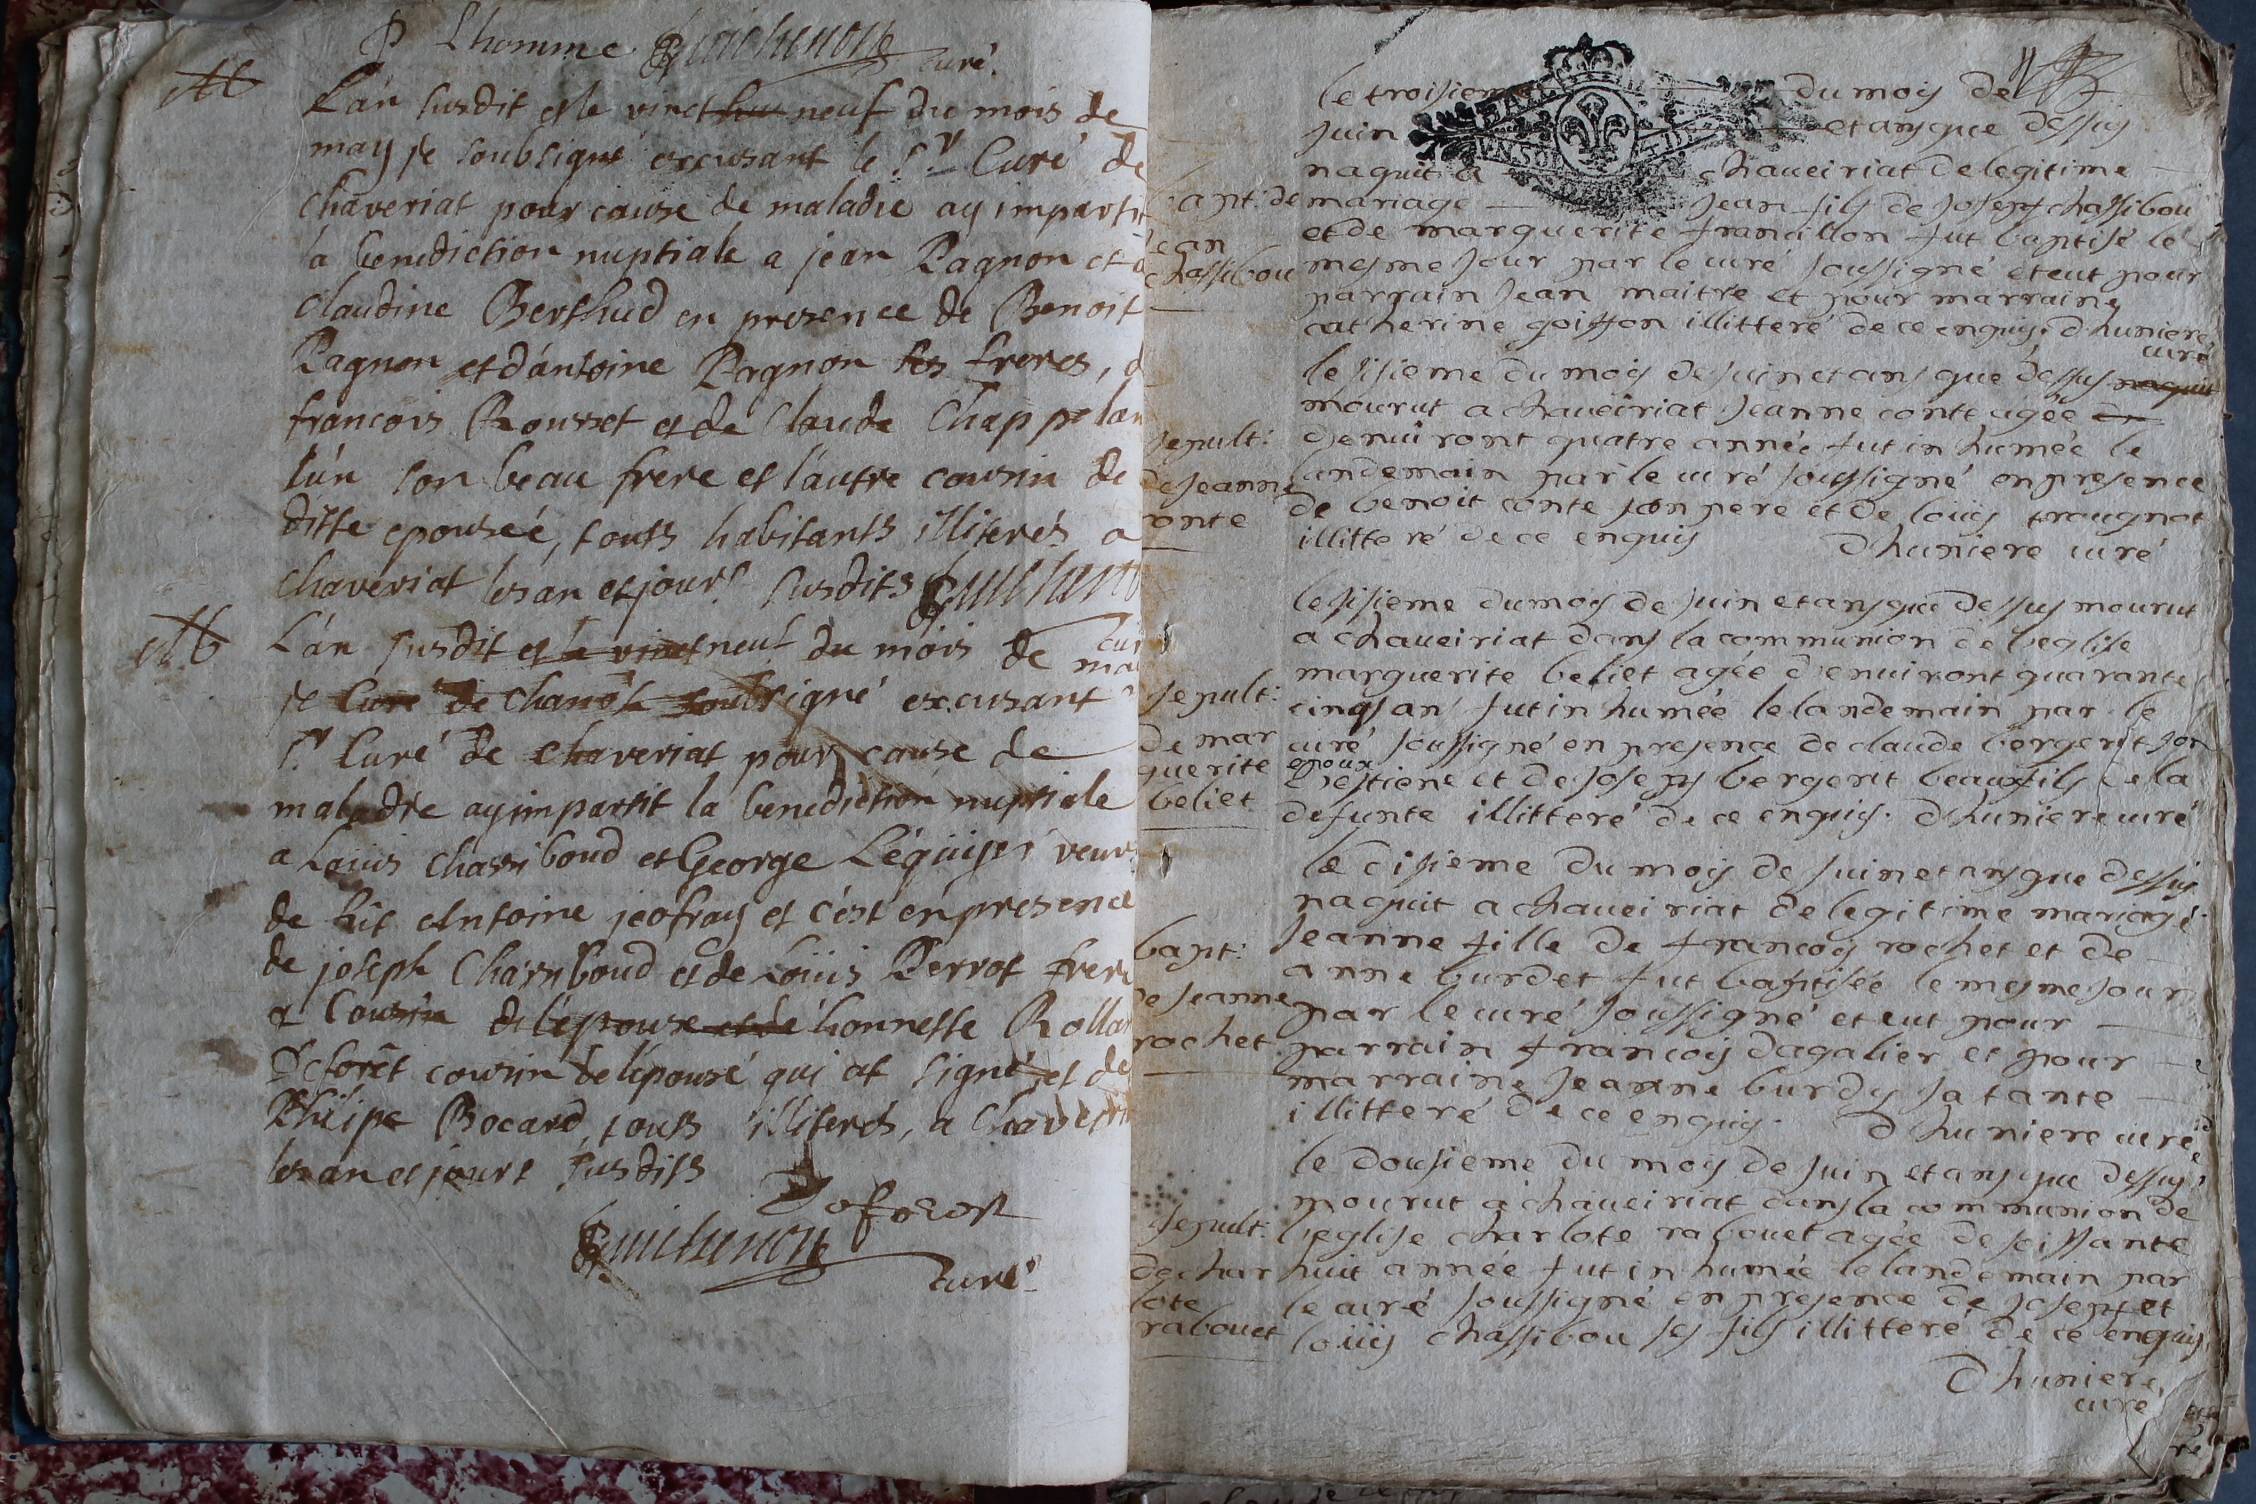 P Lhomme Guichenon curé.
L'an susdit et le vinct huic neuf du mois de
may je soubsigné excusant le Sr Curé de
chaveriat pour cause de maladie ay impartit
la benediction nuptiale a jean Pagnon et a
claudine Berthud en presence de Benoit
Pagnon et d'antoine Pagnon ses freres,
francois Rousset et de Claude Chappelan
l'un son beau frere et l'autre cousin de
ditte epouseé, touts habitants illiterés a
chaveriat les an et jour susdits Guichenon
L'an susdit et le vinct neuf du mois de
je Curé de chanoʒ soubsigné excusant
Sr Curé de chaveriat pour cause de
maladie ay impartit la benediction nuptiale
a Louis chassiboud et George Léguise veuve
de fut Antoine jeofray et c'est en presence
de joseph Chassiboud et de Loüis Perrot frere
et Cousin de l'epouse et de honneste Rollan
Deforêt cousin de l'epousé qui at signé, et de
Philipe Bocard, touts illiterés, a Chaveriat
les an et jours susdits
Deforest
Guichenon
curé
le troisieme du mois de
juin et ans que dessus
naquit a chaveiriat de legitime
bapt: de mariage jean fils de joseph chassibou
et de marguerite francillon fut baptisé le
jean
chassibou mesme jour par le curé soussigné et eut pour
parrain jean maitre et pour marraine
catherine goiffon illitteré de ce enquis. Dhuniere
curé
le sisieme du mois de juin et ans que dessus naquit
mourut a chaveiriat jeanne conte agée
sepult: denviront quatre année fut inhumée le
de jeanne landemain par le curé soussigné en presence
conte de benoit conte son pere et de loüis trougnot
illitteré de ce enquis Dhuniere curé
le sisieme du mois de juin et ans que dessus mourut
a chaveiriat dans la communion de leglise
marguerite beliet agée denviront quarante
sepult: cinq an fut inhumée le landemain par le
de mar curé soussigné en presence de claude bergerit son
guerite epoux
estiene et de joseph bergerit beaux fils de la
beliet defunte illitteré de ce enquis. Dhuniere curé
le disieme du mois de juin et ans que dessus
naquit a chaveiriat de legitime mariage
bapt: jeanne fille de francois rochet et de
anne burdet fut baptisée le mesme jour
de jeanne par le curé soussigné et eut pour
rochet. parrain francois dagalier et pour
marraine jeanne burdy sa tante
illitteré de ce enquis. Dhuniere curé
le dousieme du mois de juin et ans que dessus
mourut a chaveiriat dans la communion de
sepult: leglise charlote rabouet agée de soissante
de char huit année fut inhumée le landemain par
lote le curé soussigné en presence de joseph et
rabouet loüis chassibou ses fils illitteré de ce enquis
Dhuniere
curé